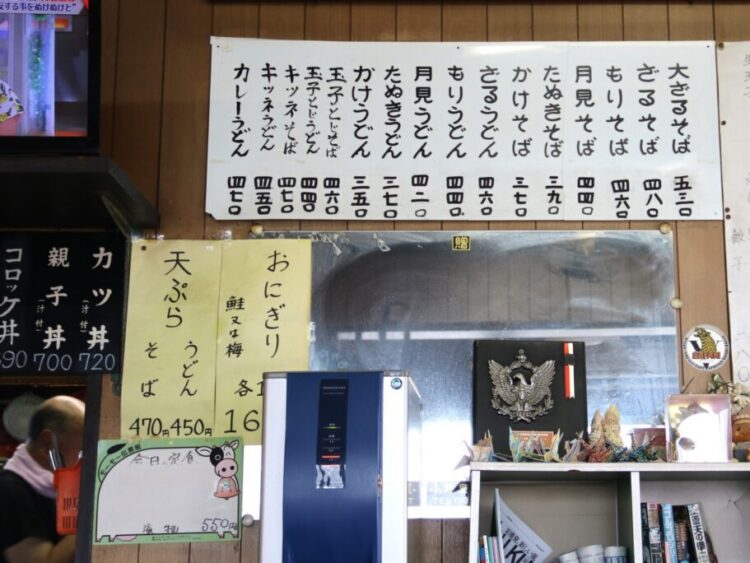 反する事をぬけぬけと”
大ざるそば 五三〇
ざるそば 四八〇
もりそば 四六〇
月見そば 四四〇
たぬきそば 三九〇
かけそば 三七〇
ざるうどん 四六〇
もりうどん 四四〇
月見うどん 四二〇
たぬきうどん 三七〇
かけうどん 三五〇
玉子とじそば 四六〇
玉子とじうどん 四四〇
キツネそば 四七〇
キツネうどん 四五〇
カレーうどん 四七〇
カツ丼 (汁付) 720
親子丼 (汁付) 700
コロッケ丼 690
おにぎり
鮭又は梅 各1
16
天ぷら
うどん 450円
そば 470円
今日の定食
550円